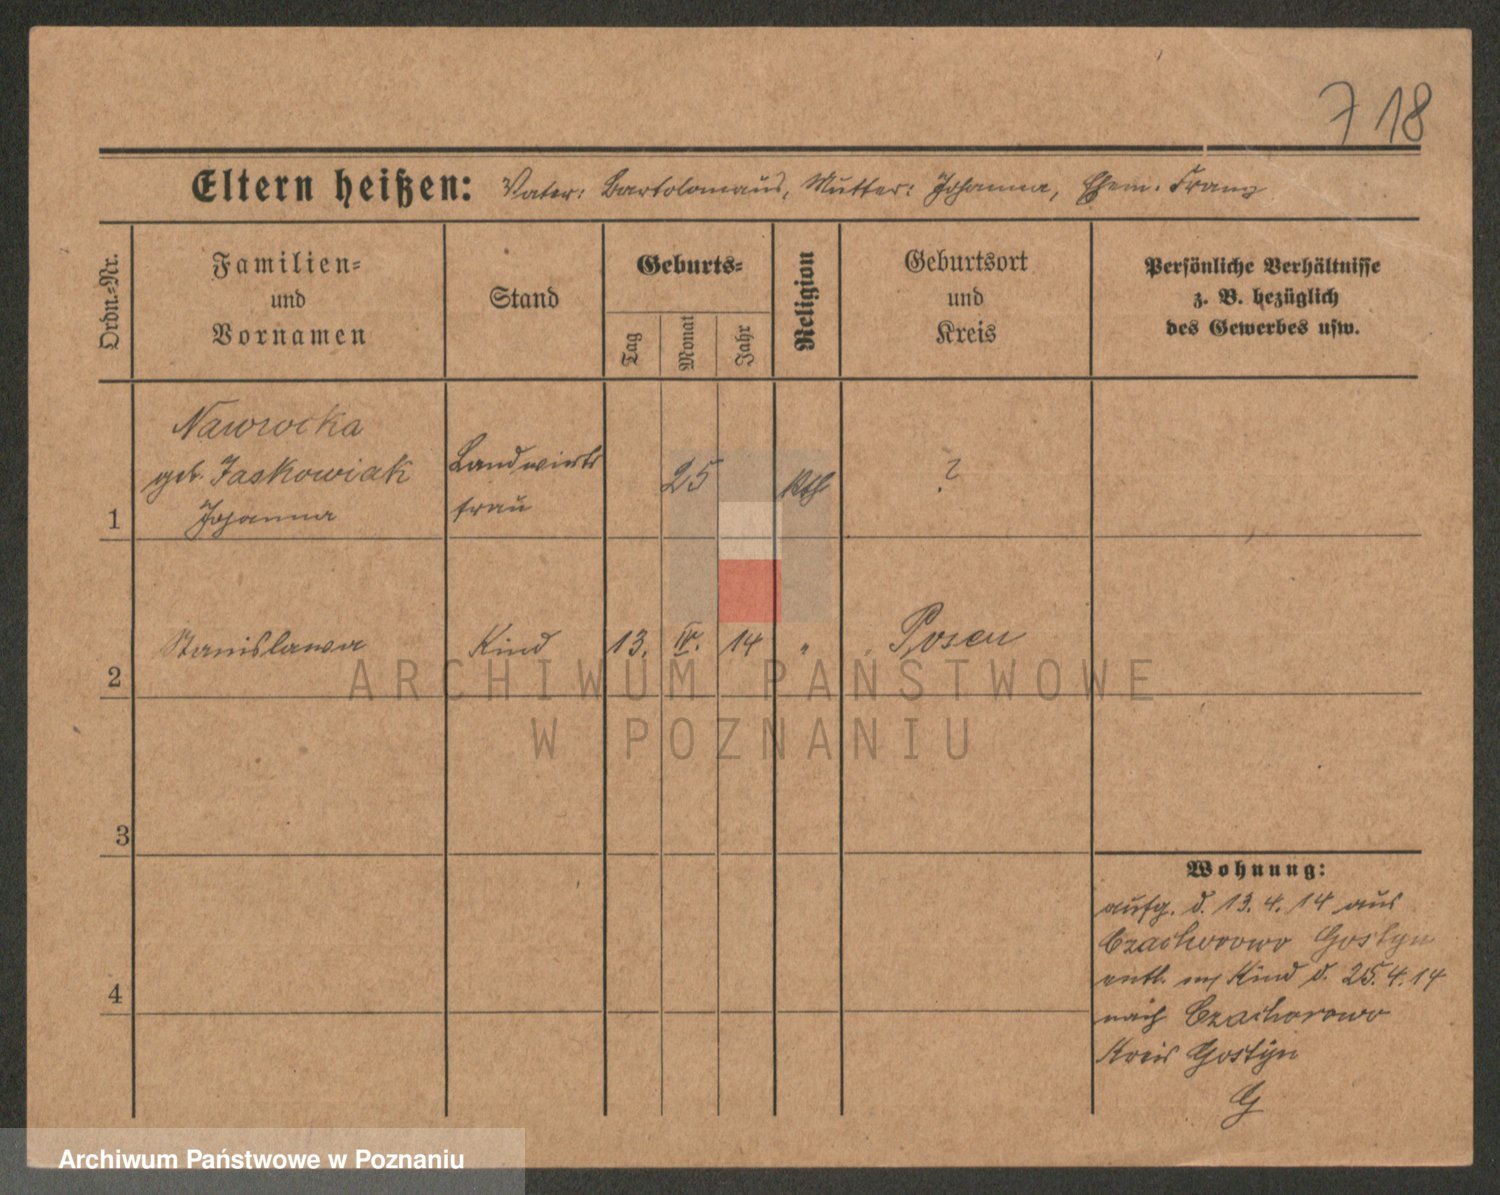 718
Eltern heißen: Vater: Bartolomäus, Mutter: Johanna, Ehem. Franz
Ordn.-Nr.
Familien-
und
Vornamen
Stand
Geburts-
Tag
Monat
Jahr
Religion
Geburtsort
und
Kreis
Persönliche Verhältnisse
z. B. bezüglich
des Gewerbes usw.
1
Nawrocka
geb. Jaskowiak
Johanna
Landwirts
frau
25
kth
?
2
Stanislawa
Kind
13.
IV.
14
"
Posen
3
4
Wohnung:
aufg. d. 13. 4. 14 aus
Czachorowo Gostyn
entl. m Kind d. 25. 4. 14
nach Czachorowo
Kreis Gostyn
G
ARCHIWUM PAŃSTWOWE
W POZNANIU
Archiwum Państwowe w Poznaniu